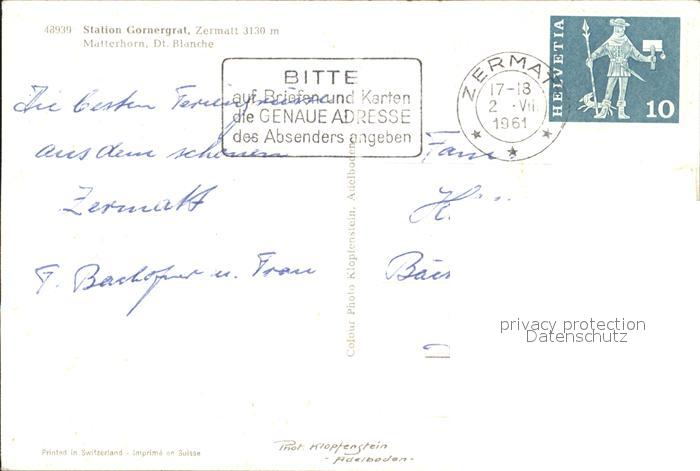 48939 Station Gornergrat, Zermatt 3130 m
Matterhorn, Dt. Blanche
BITTE
auf Briefen und Karten
die GENAUE ADRESSE
des Absenders angeben
ZERMATT
17-18
2. VII.
1961
HELVETIA
10
Die besten Feriengrüsse
aus dem schönen
Zermatt
F. Bachofner u. Frau
Colour Photo Klopfenstein, Adelboden
Fam.
privacy protection
Datenschutz
Phot Klopfenstein
- Adelboden -
Printed in Switzerland - Imprimé en Suisse